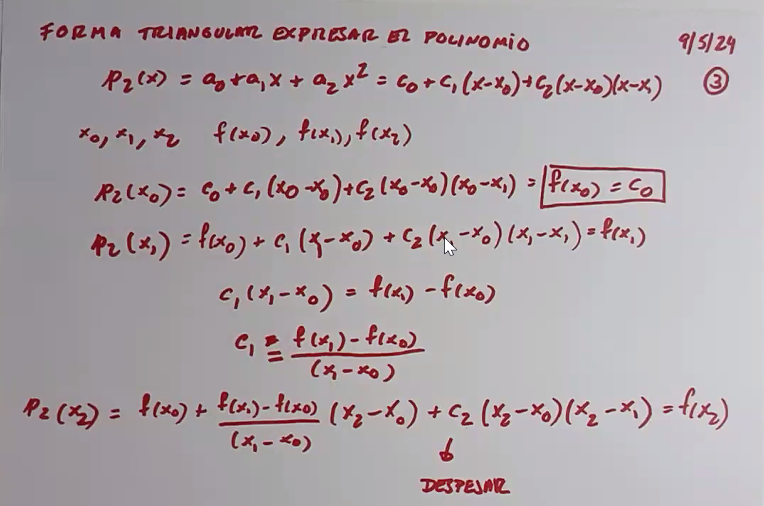 FORMA TRIANGULAR EXPRESAR EL POLINOMIO 9/5/24
P₂(x) = a₀ + a₁x + a₂x² = c₀ + c₁(x-x₀) + c₂(x-x₀)(x-x₁) ③
x₀, x₁, x₂ f(x₀), f(x₁), f(x₂)
P₂(x₀) = c₀ + c₁(x₀-x₀) + c₂(x₀-x₀)(x₀-x₁) = f(x₀) = c₀
P₂(x₁) = f(x₀) + c₁(x₁-x₀) + c₂(x₁-x₀)(x₁-x₁) = f(x₁)
c₁(x₁-x₀) = f(x₁) - f(x₀)
c₁ = f(x₁) - f(x₀) / (x₁-x₀)
P₂(x₂) = f(x₀) + f(x₁) - f(x₀) / (x₁-x₀) (x₂-x₀) + c₂(x₂-x₀)(x₂-x₁) = f(x₂)
↓
DESPEJAR